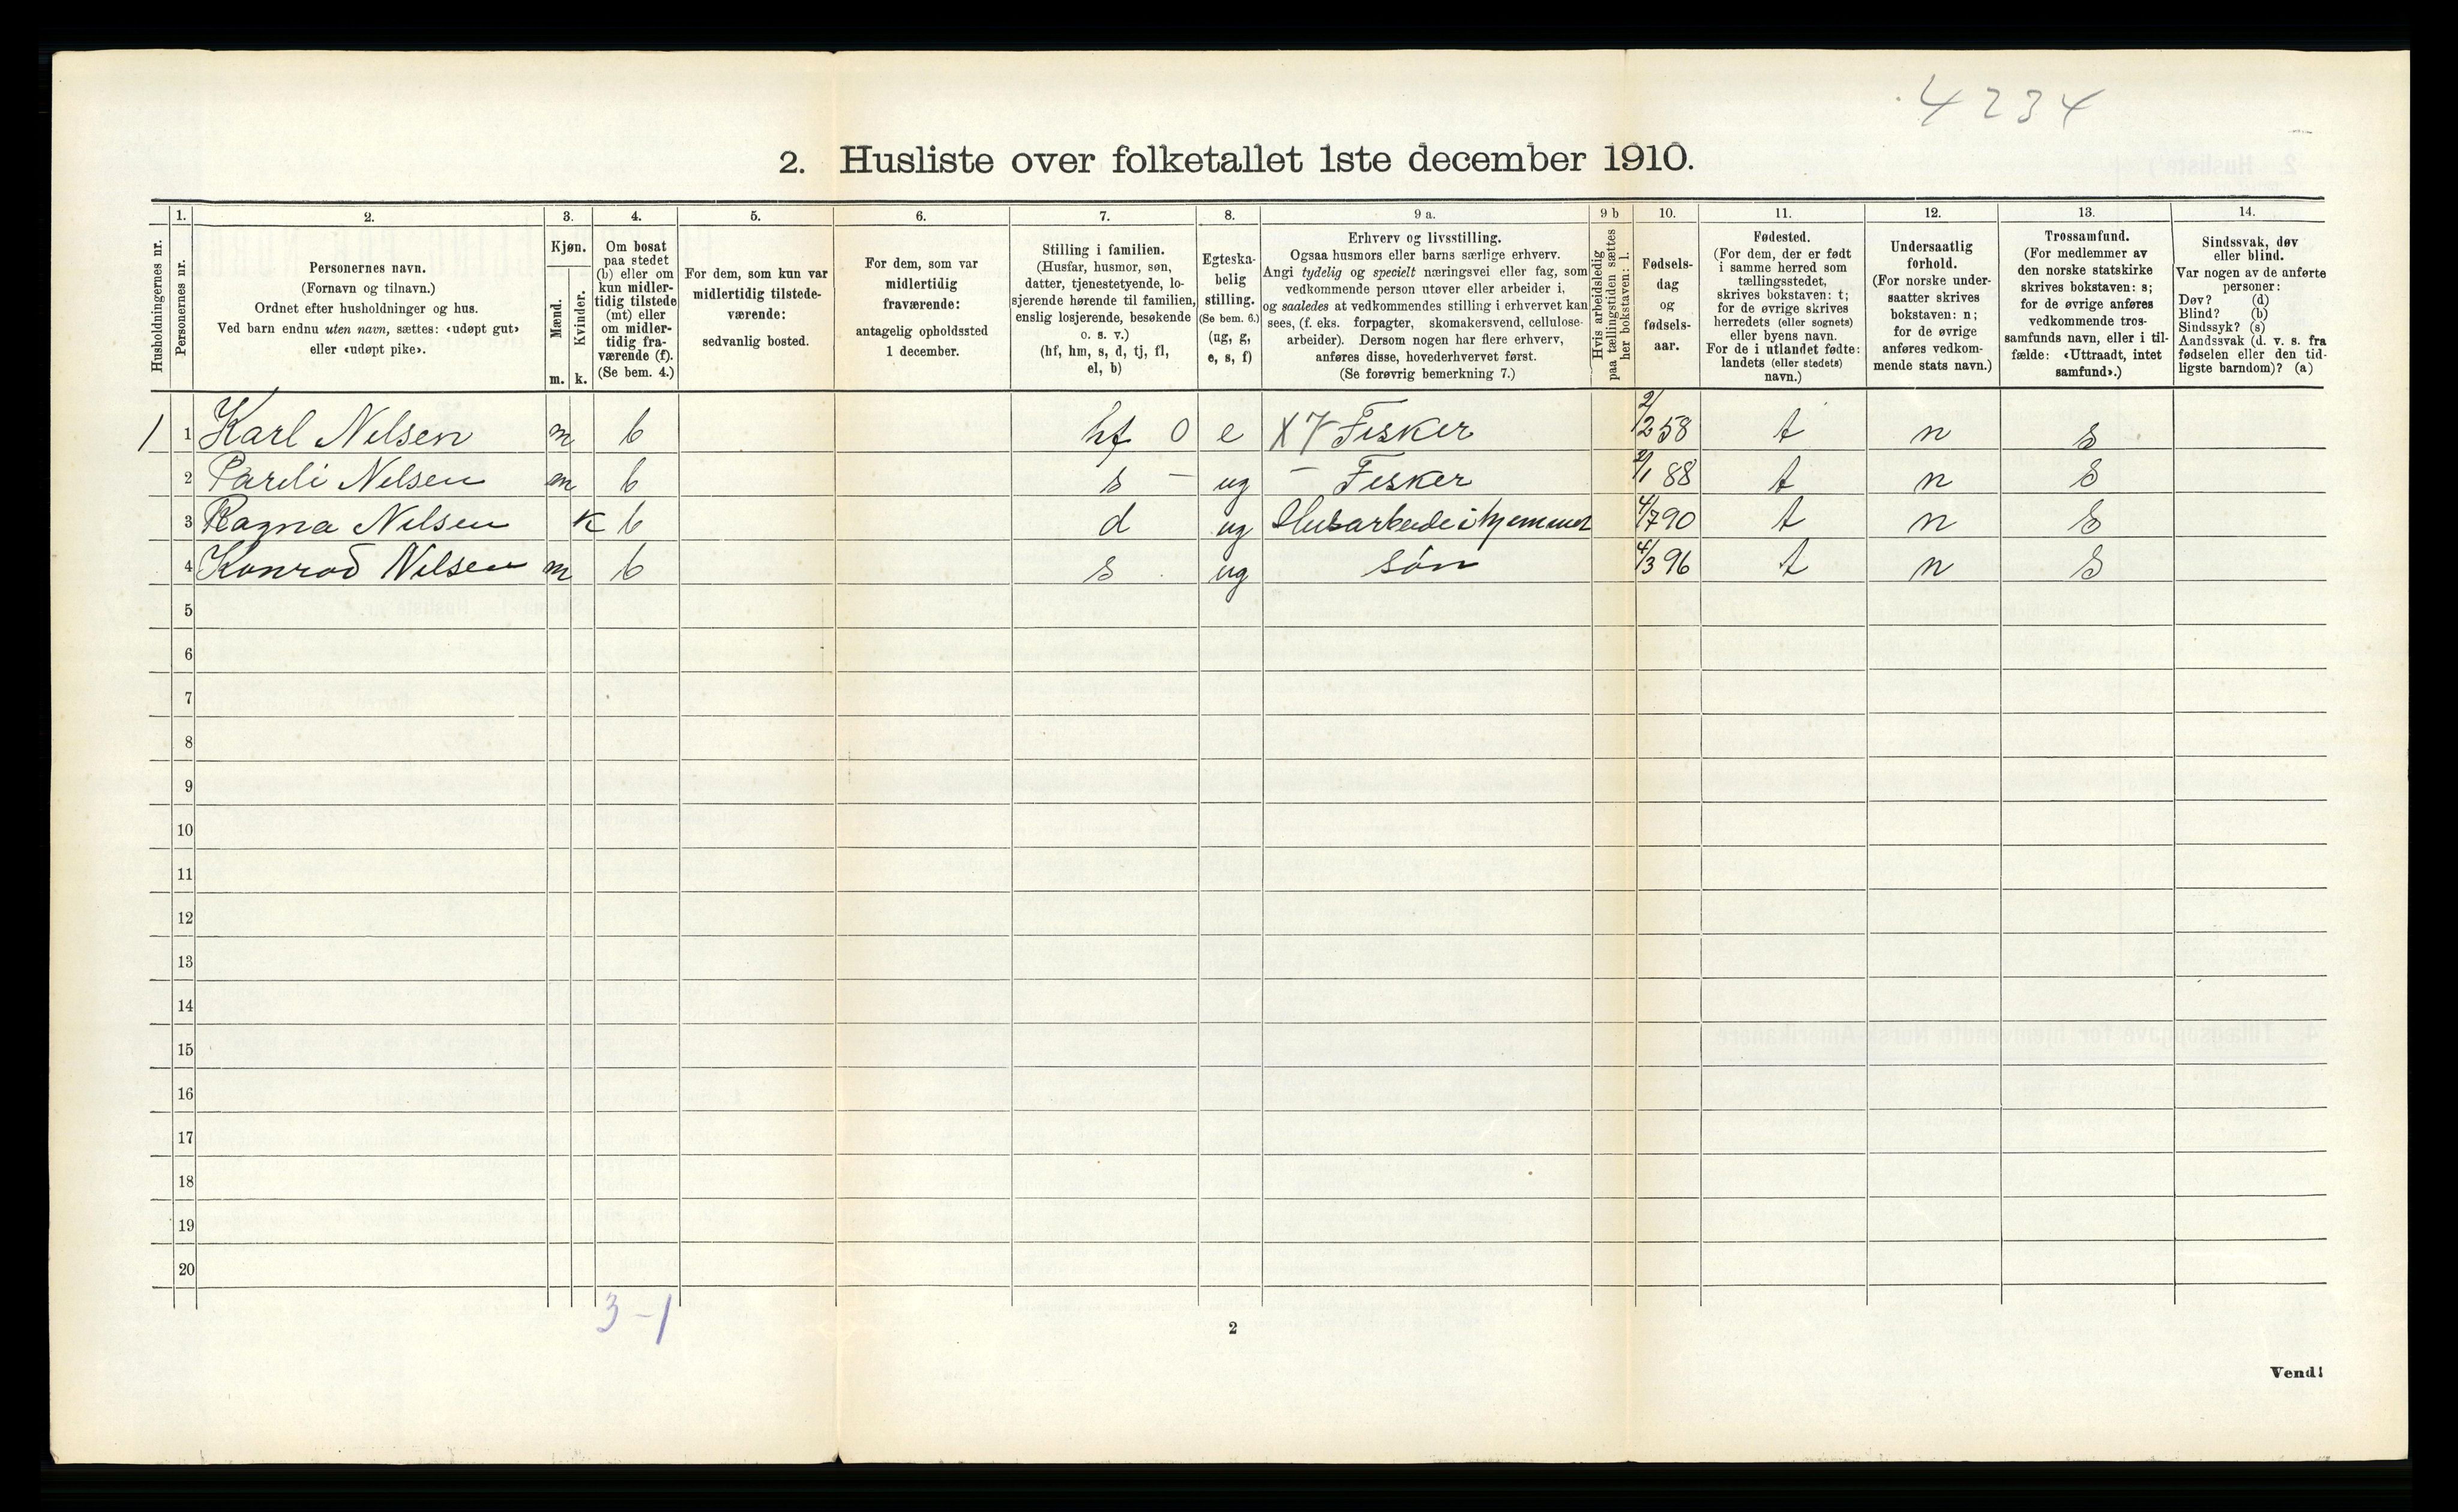 4234
2. Husliste over folketallet 1ste december 1910.
1. 2. 3. 4. 5. 6. 7. 8. 9 a. 9 b 10. 11. 12. 13. 14.
Husholdningernes nr.
Personernes nr.
Personernes navn.
(Fornavn og tilnavn.)
Ordnet efter husholdninger og hus.
Ved barn endnu uten navn, sættes: «udøpt gut»
eller «udøpt pike».
Kjøn.
Mænd.
Kvinder.
m. k.
Om bosat
paa stedet
(b) eller om
kun midler-
tidig tilstede
(mt) eller
om midler-
tidig fra-
værende (f).
(Se bem. 4.)
For dem, som kun var
midlertidig tilstede-
værende:
sedvanlig bosted.
For dem, som var
midlertidig
fraværende:
antagelig opholdssted
1 december.
Stilling i familien.
(Husfar, husmor, søn,
datter, tjenestetyende, lo-
sjerende hørende til familien,
enslig losjerende, besøkende
o. s. v.)
(hf, hm, s, d, tj, fl,
el, b)
Egteska-
belig
stilling.
(Se bem. 6.)
(ug, g,
e, s, f)
Erhverv og livsstilling.
Ogsaa husmors eller barns særlige erhverv.
Angi tydelig og specielt næringsvei eller fag, som
vedkommende person utøver eller arbeider i,
og saaledes at vedkommendes stilling i erhvervet kan
sees, (f. eks. forpagter, skomakersvend, cellulose-
arbeider). Dersom nogen har flere erhverv,
anføres disse, hovederhvervet først.
(Se forøvrig bemerkning 7.)
Hvis arbeidsledig
paa tællingstiden sættes
her bokstaven: l.
Fødsels-
dag
og
fødsels-
aar.
Fødested.
(For dem, der er født
i samme herred som
tællingsstedet,
skrives bokstaven: t;
for de øvrige skrives
herredets (eller sognets)
eller byens navn.
For de i utlandet fødte:
landets (eller stedets)
navn.)
Undersaatlig
forhold.
(For norske under-
saatter skrives
bokstaven: n;
for de øvrige
anføres vedkom-
mende stats navn.)
Trossamfund.
(For medlemmer av
den norske statskirke
skrives bokstaven: s;
for de øvrige anføres
vedkommende tros-
samfunds navn, eller i til-
fælde: «Uttraadt, intet
samfund».)
Sindssvak, døv
eller blind.
Var nogen av de anførte
personer:
Døv? (d)
Blind? (b)
Sindssyk? (s)
Aandssvak (d. v. s. fra
fødselen eller den tid-
ligste barndom)? (a)
1 1 Karl Nilsen m b hf 0 e X Fisker 2/2 58 t n s
2 Nilsen m b s – ug – Fisker 2/1 88 t n s
3 Ragna Nilsen k b d ug Husarbeide i hjemmet 4/7 90 t n s
4 Konrad Nilsen m b s ug søn 4/3 96 t n s
5
6
7
8
9
10
11
12
13
14
15
16
17
18
19
20
3 – 1
2
Vend!